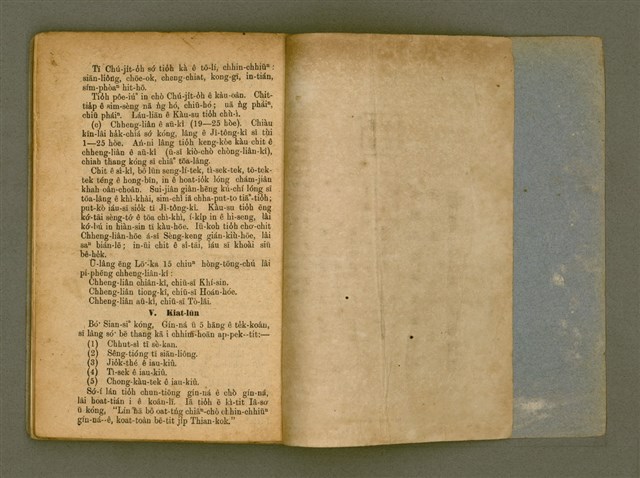 Tī Chú-ji̍t-o̍h só͘ tio̍h kà ê tō-lí, chhin-chhiūⁿ:
siān-liông, chōe-ok, cheng-chiat, kong-gī, in-tián,
sím-phòaⁿ hit-hō.
Tio̍h pôe-iúⁿ in chò Chú-ji̍t-o̍h ê kàu-oân. Chit-
tia̍p ê sim-sèng nā n̄g hó, chiū-hó; nā n̄g pháiⁿ,
chiū pháiⁿ. Láu-liān ê Kàu-su tio̍h chù-ì.
(c) Chheng-liân ê aū-kî (19—25 hòe). Chiàu
kīn-lâi ha̍k-chiá só͘ kóng, lâng ê Jî-tông-kî sī tùi
1—25 hòe. Án-ni lâng tio̍h keng-kòe kàu chit ê
chheng-liân ê aū-kî (ū-sî kiò-chò chòng-liân-kî),
chiah thang kóng sī chiâⁿ tōa-lâng.
Chit ê sî-kî, bô lūn seng-lí-tek, tì-sek-tek, tō-tek-
tek téng ê hong-bīn, in ê hoat-io̍k lóng chám-jiân
khah oân-choân. Sui-jiân giân-hêng kú-chí lóng sī
tōa-lâng ê khì-khài, sim-chì iā chha-put-to tiāⁿ-tio̍h;
put-kò iáu-sī sio̍k tī Jî-tông-kî. Kàu-su tio̍h ēng
kó͘-tāi sèng-tô͘ ê tōa chì-khì, í-ki̍p in ê hi-seng, lâi
kó͘-bú in hiàn-sin tī kàu-hōe. Iū-koh tio̍h chơ-chit
Chheng-liân-hōe á-sī Sèng-keng gián-kiù-hōe, lâi
saⁿ bián-lē; in-ūi chit ê sî-tāi, iáu sī khoài siū
bê-he̍k.
Ū-lâng ēng Lō͘-ka 15 chiuⁿ hòng-tōng-chú lâi
pí-phēng chheng-liân-kî:
Chheng-liân chiân-kî, chiū-sī Khí-sin.
Chheng-liân tiong-kî, chiū-sī Hoán-hóe.
Chheng-liân aū-kî, chiū-sī Tò-lâi.
V. Kiat-lūn
Bó͘ Sian-siⁿ kóng, Gín-ná ū 5 hāng ê te̍k-koân,
sī lâng só͘ bē thang kā i chhim-hoān ap-pek--tit:—
(1) Chhut-sì tī sè-kan.
(2) Sêng-tióng tī siān-liông.
(3) Jio̍k-thé ê iau-kiû.
(4) Tì-sek ê iau-kiû.
(5) Chong-kàu-tek ê iau-kiû.
Só͘-í lán tio̍h chun-tiōng gín-ná ê chò gín-ná,
lâi hoat-tián i ê koân-lī. Iā tio̍h ē kì-tit Iâ-so͘
ū kóng, "Lín nā bô oat-tńg chiâⁿ-chò chhin-chhiūⁿ
gín-ná--ê, koat-toàn bē-tit ji̍p Thian-kok."